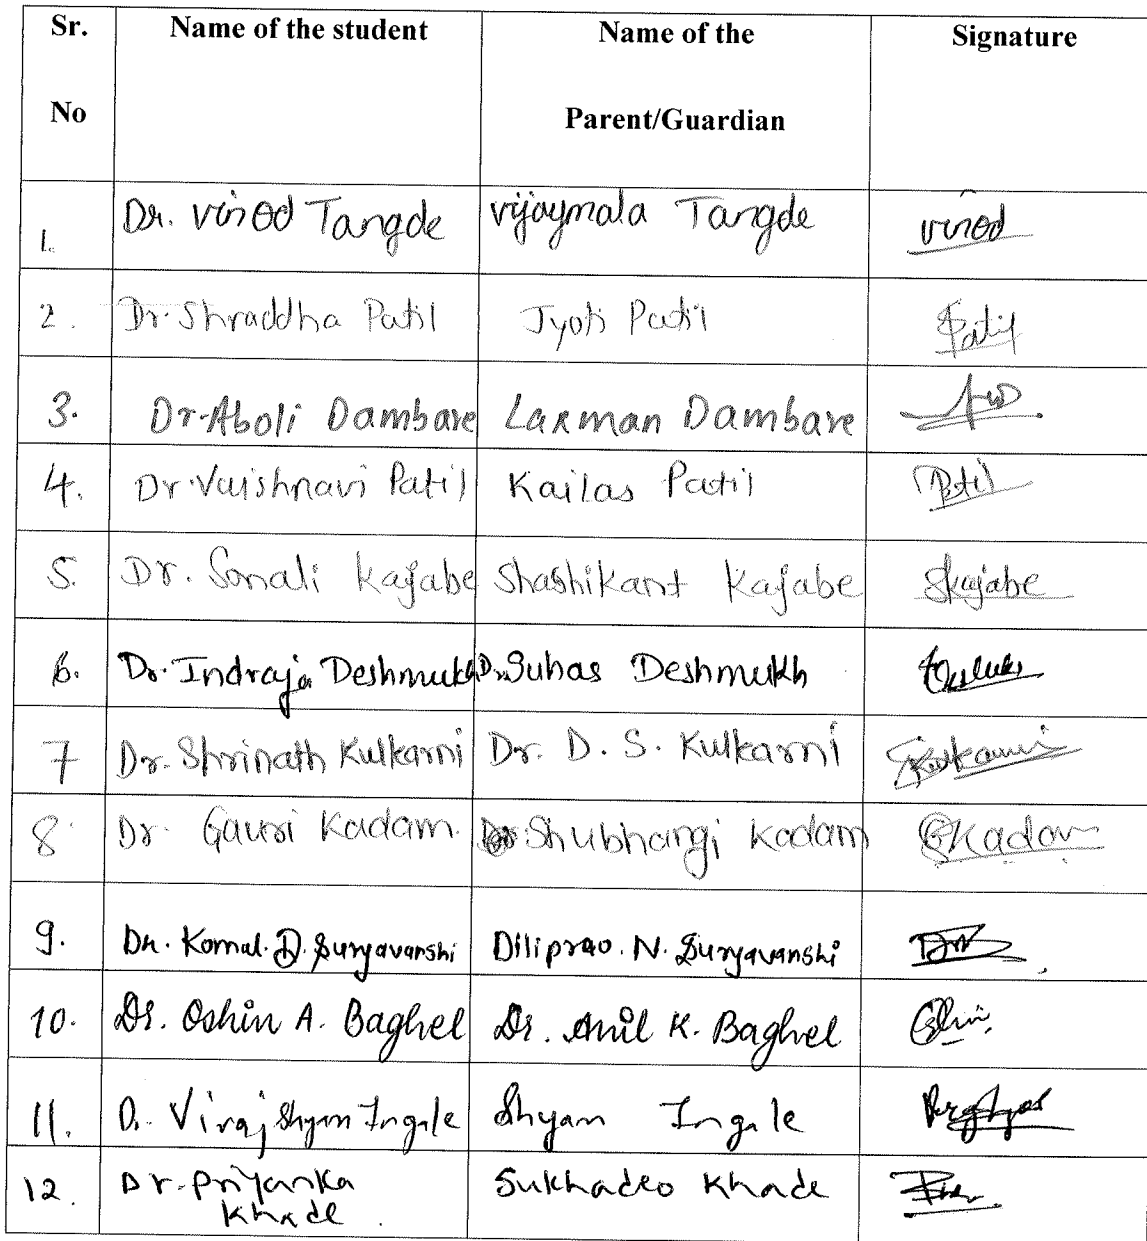 Sr. No Name of the student Name of the Parent/Guardian Signature
1. Dr. vinod Tangde vijaymala Tangde vinod
2. Dr. Shraddha Patil Jyoti Patil Patil
3. Dr. Aboli Dambare Laxman Dambare
4. Dr. Vaishnavi Patil Kailas Patil Patil
5. Dr. Sonali Kajabe Shashikant Kajabe Skajabe
6. Dr. Indraja Deshmukh Dr. Suhas Deshmukh
7 Dr. Shrinath Kulkarni Dr. D. S. Kulkarni Kulkarni
8. Dr. Gauri Kadam. Shubhangi Kadam GKadam
9. Dr. Komal. D. Suryavanshi Diliprao. N. Suryavanshi
10. Dr. Oshin A. Baghel Dr. Anil K. Baghel Oshin
11. D. Viraj Shyam Ingale Shyam Ingale
12. Dr. Priyanka Khade Sukhadeo Khade